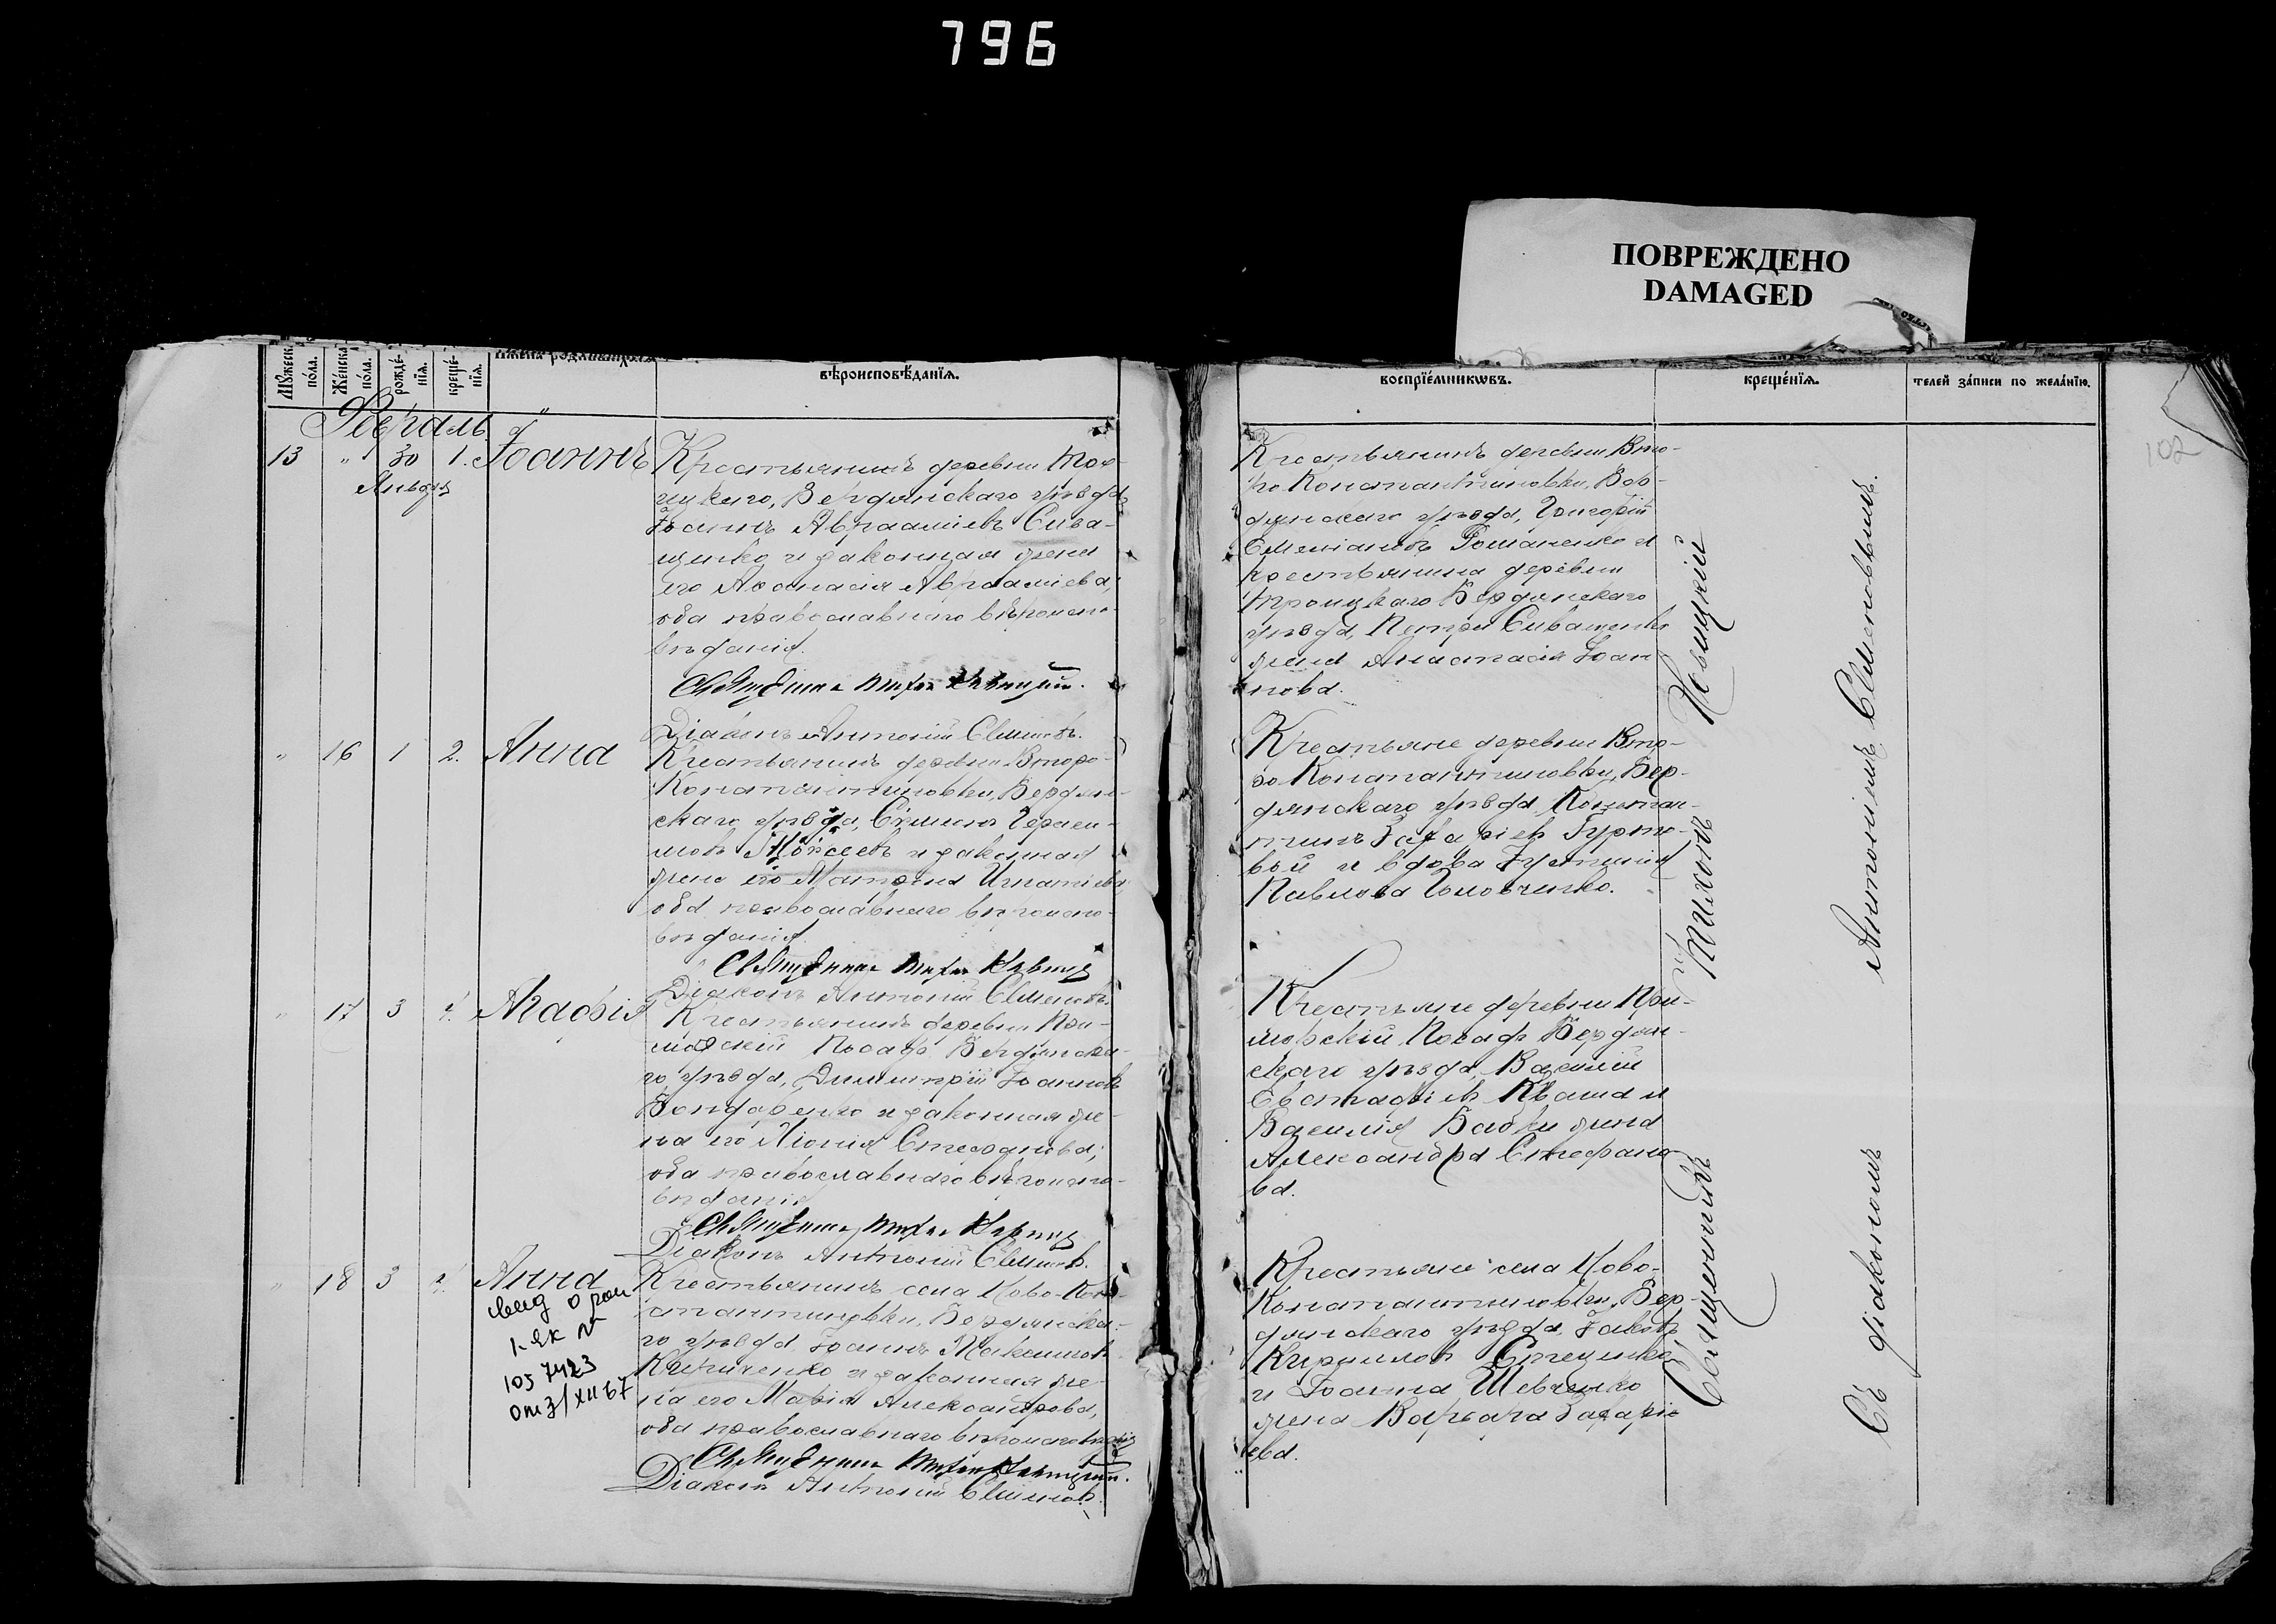 796
ПОВРЕЖДЕНО
DAMAGED
Мꙋжеск.
пóла.
Жéнска
пóла.
рождé-
нїѧ.
крещé-
нїѧ.
вѣроисповѣданїѧ.
Февраль
13 " 30 1. Іоаннъ
Января
Крестьянинъ деревни Тро-
ицкаго, Бердянскаго уѣзда
Іоаннъ Авраамiевъ Сива-
щенко и законная жена
его Аѳанасія Авраамiева,
оба православнаго вѣроиспо-
вѣданія.
Священникъ Тихонъ Новицкій.
Діаконъ Антоній Семеновъ.
" 16 1 2. Анна
Крестьянинъ деревни Второ-
Константиновки, Бердян-
скаго уѣзда, Симеонъ Гераси-
мовъ Моисеевъ и законная
жена его Матрона Игнатіева
оба православнаго вѣроиспо-
вѣданія.
Священникъ Тихонъ Новиц
Діаконъ Антоній Семеновъ.
" 17 3 4. Агафія
Крестьянинъ деревни При-
морскій Посадъ Бердянска-
го уѣзда, Димитрій Іоанновъ
Бондаренко и законная же-
на его Стефанова;
оба православнаго вѣроиспо-
вѣданія
Священникъ Тихонъ Новиц
Діаконъ Антоній Семеновъ.
" 18 3 4. Анна
свид о рож
1-ЯК №
1057423
от 3/XII 67
Крестьянинъ села Ново-Кон-
стантиновки, Бердянска-
го уѣзда Іоаннъ Максимовъ
Кириченко и законная же-
на его Марія Александрова,
оба православнаго вѣроисповѣданія
Священникъ Тихонъ Новицкій.
Діаконъ Антоній Семеновъ.
воспрїéмникѡвъ.
крещéнїѧ.
телей зáписи по желáнїю.
102
Крестьянинъ деревни Вто-
ро Константиновки, Бер-
дянскаго уѣзда, Григорій
Емеліановъ Романенко и
крестьянина деревни
Троицкаго Бердянскаго
уѣзда, Петра Сиващенко
жена Анастасія Іоан
нова.
Крестьяне деревни Вто-
ро Константиновки, Бер-
дянскаго уѣзда, Констан-
тинъ Захаріевъ Гурто-
вой и вдова Іустинія
Павлова Головченко.
Крестьяне деревни При-
морскій Посадъ Бердян-
скаго уѣзда, Василій
Евстафіевъ Кваша и
Василія Бабки жена
Александра Стефано
ва.
Крестьяне села Ново-
Константиновки, Бер-
дянскаго уѣзда, Іаковъ
Кирилловъ Стеценко
и Іоанна Шевченко
жена Варвара Захаріе
ева.
Священникъ Тихонъ Новицкій
Съ діакономъ Антоніемъ Семеновымъ.